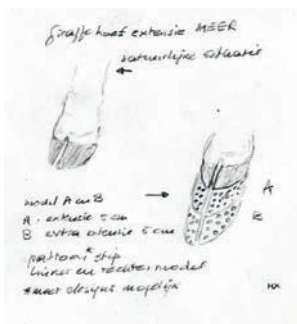 giraffe hoef extensie MEER
natuurlijke situatie
model A en B
A
A: extensie 5 cm
B
B extra extensie 5 cm
patroon* stip
linker en rechter model
*meer designs mogelijk